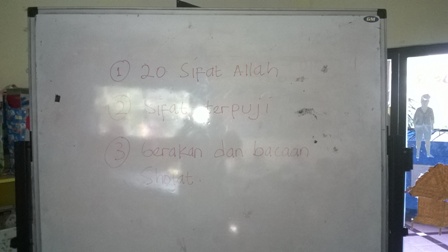 ① 20 Sifat Allah
② Sifat terpuji
③ Gerakan dan bacaan
Sholat